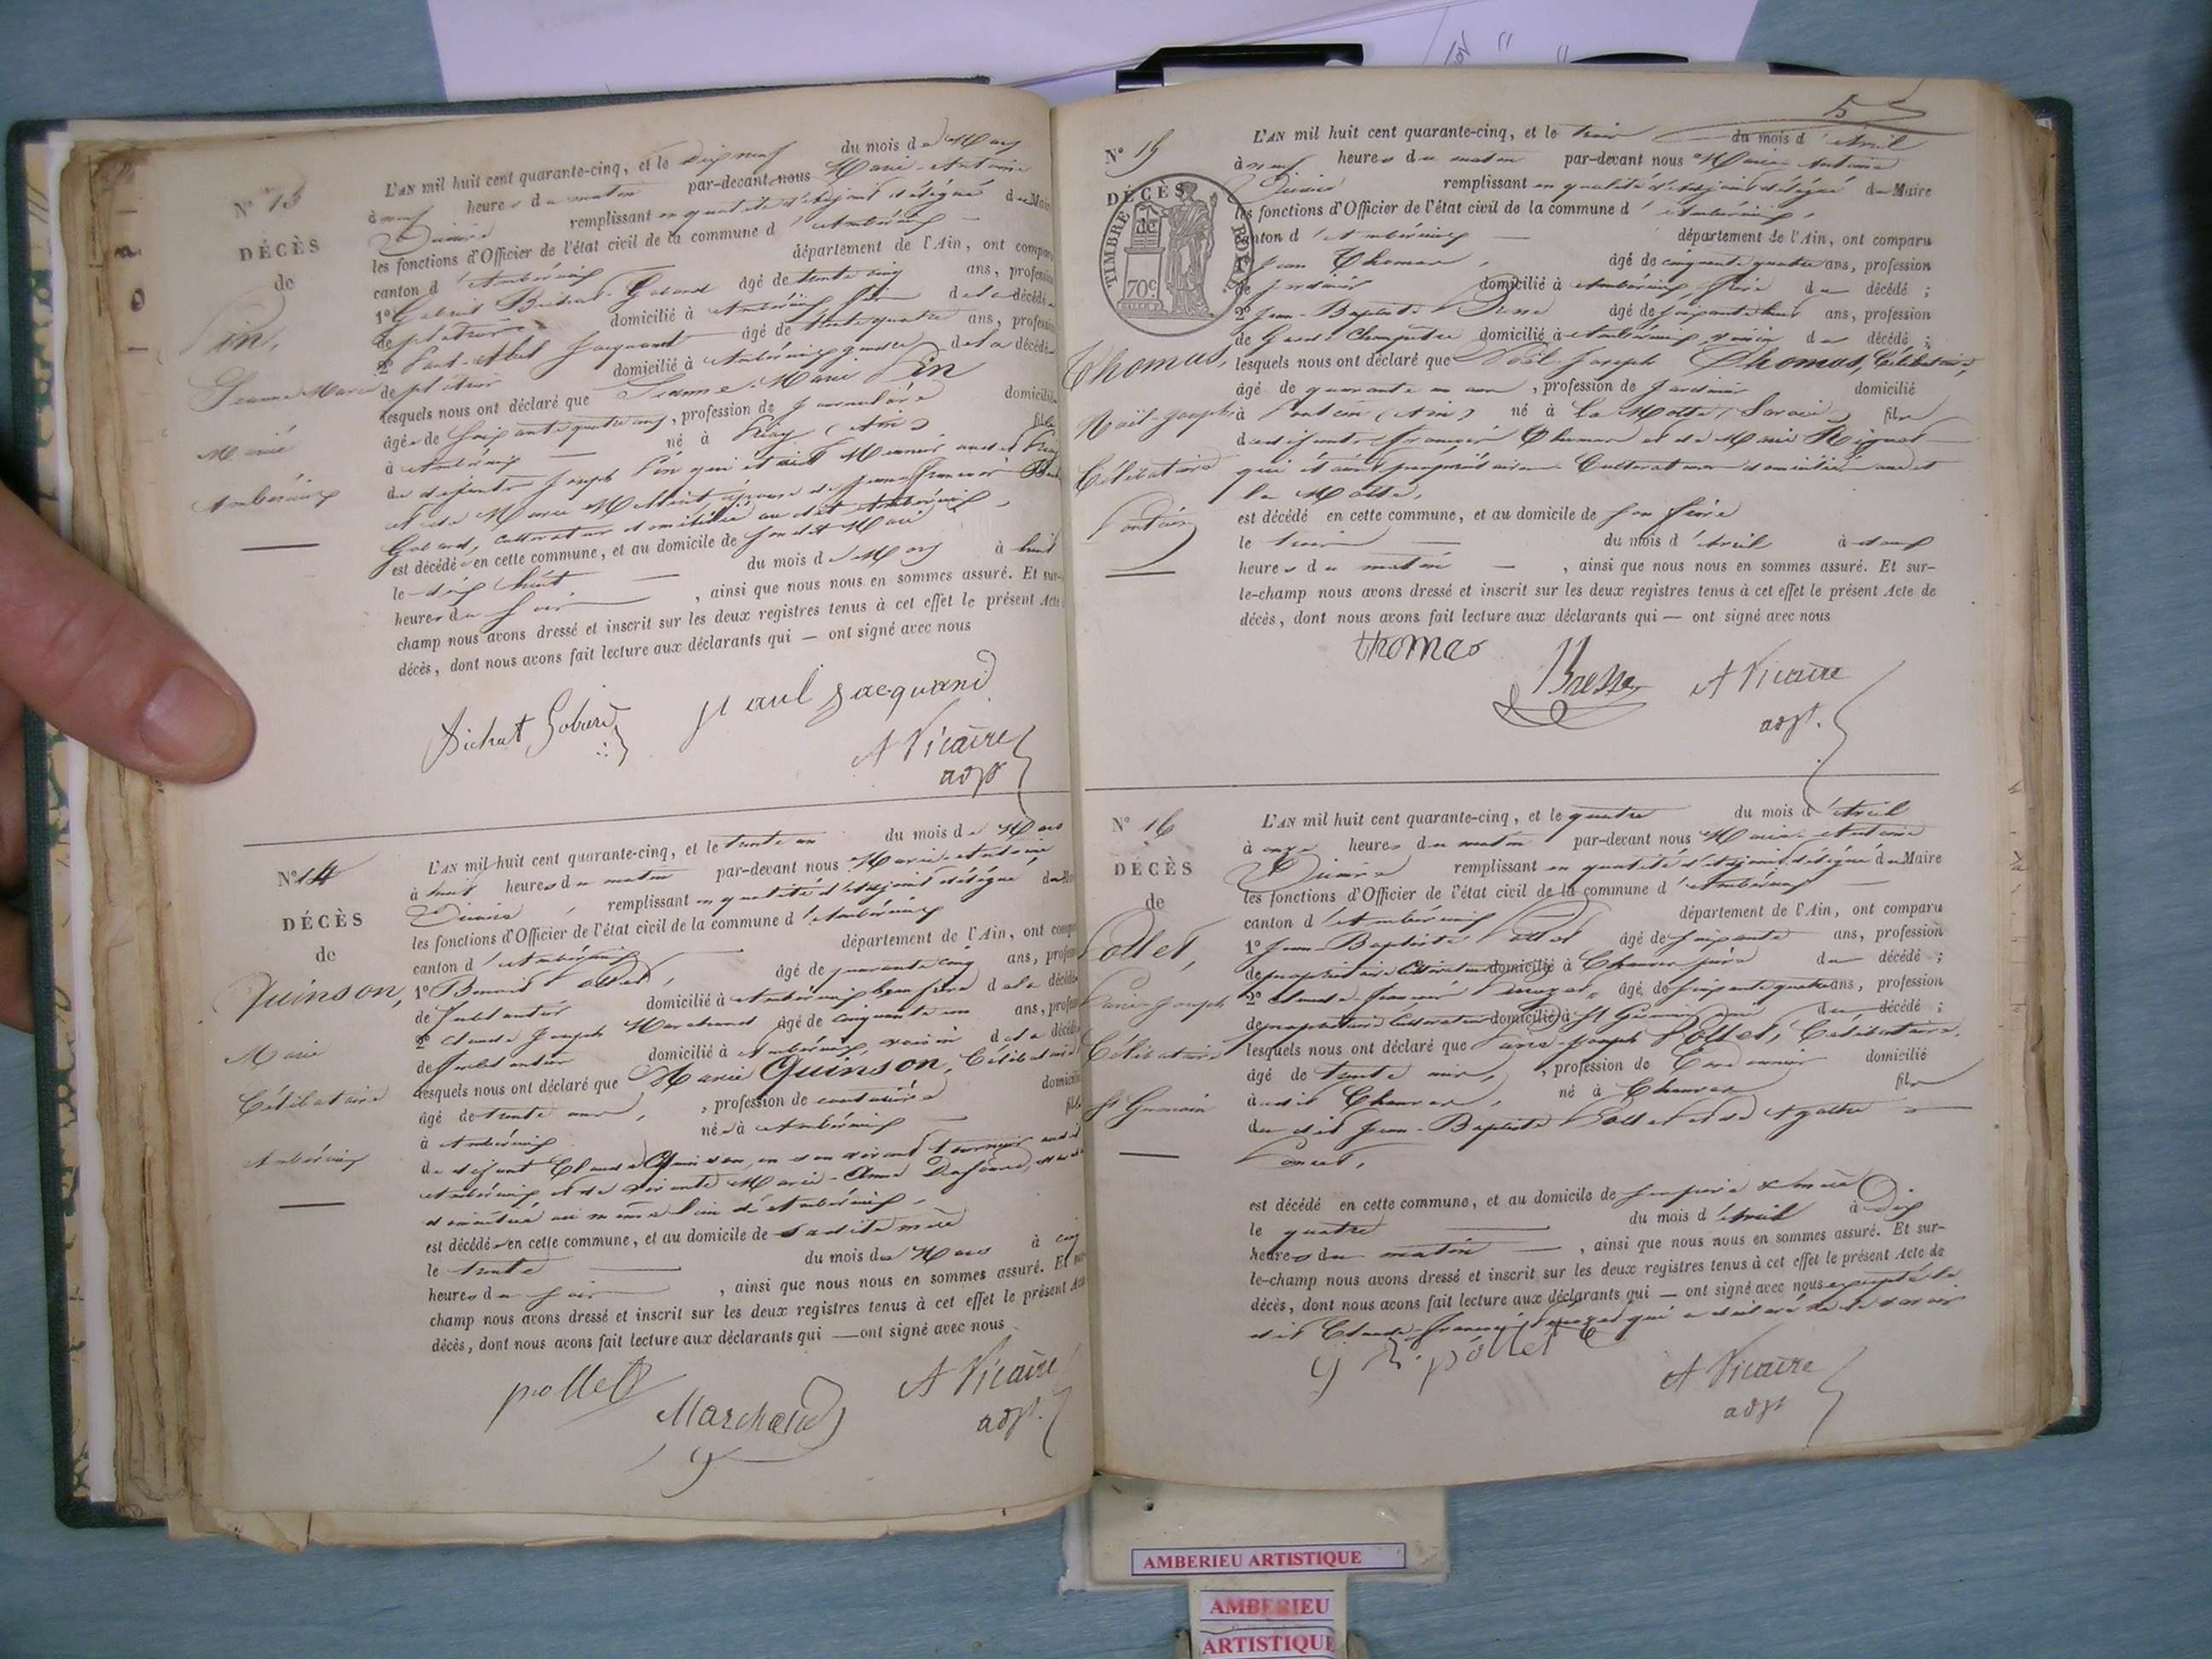 N° 13
DÉCÈS
de
Pin,
Jeanne Marie
Marié
Ambérieux
L'AN mil huit cent quarante-cinq, et le Dix neuf du mois de Mars
à neuf heures du matin par-devant nous Marie-Antoine
Vicaire remplissant en qualité d'adjoint délégué du Maire
les fonctions d'Officier de l'état civil de la commune d'Ambérieux
canton d'Ambérieux département de l'Ain, ont comparu
1° Gabriel Gobard âgé de trente cinq ans, profession
de domicilié à Ambérieux fils de la décédée
2° Paul-Abel Jacquand âgé de trente quatre ans, profession
de domicilié à Ambérieux gendre de la décédée
lesquels nous ont déclaré que Jeanne-Marie Pin
âgée de soixante quatre ans, profession de journalière domiciliée
à Ambérieux né à (Ain) fille
de défunts Joseph Pin qui était Meunier
et de Marie épouse de Jean François
Gobard, cultivateur domicilié au dit Ambérieux,
est décédée en cette commune, et au domicile de son dit Mari
le dix huit du mois de Mars à huit
heures du soir, ainsi que nous nous en sommes assuré. Et sur-
champ nous avons dressé et inscrit sur les deux registres tenus à cet effet le présent Acte
décès, dont nous avons fait lecture aux déclarants qui — ont signé avec nous
Bichat Gobard Paul Jacquand
A Vicaire
adjt
N° 14
DÉCÈS
de
Quinson,
Marie
Célibataire
Ambérieux
L'AN mil huit cent quarante-cinq, et le trente un du mois de Mars
à huit heures du matin par-devant nous Marie-Antoine
Vicaire, remplissant en qualité d'adjoint délégué du
les fonctions d'Officier de l'état civil de la commune d'Ambérieux
canton d'Ambérieux département de l'Ain, ont
1° Benoit Pollet, âgé de quarante cinq ans,
de domicilié à Ambérieux beau frère de la décédée
2° Claude Joseph Marchand âgé de cinquante un ans,
de domicilié à Ambérieux, voisin de la décédée
lesquels nous ont déclaré que Marie Quinson, Célibataire
âgé de trente ans, profession de couturière
à Ambérieux née à Ambérieux
de défunt Claude Quinson, en son vivant
Ambérieux et de vivante Marie-Anne
domiciliée au même lieu d'Ambérieux,
est décédée en cette commune, et au domicile de sa dite mère
le trente du mois de Mars à cinq
heures du soir, ainsi que nous nous en sommes assuré. Et
champ nous avons dressé et inscrit sur les deux registres tenus à cet effet le présent
décès, dont nous avons fait lecture aux déclarants qui — ont signé avec nous
pollet Marchand A Vicaire
adjt.
5
N° 15
DÉCÈS
de
TIMBRE ROYAL
70c
Thomas,
Noël-Joseph
Célibataire
Poncin
L'AN mil huit cent quarante-cinq, et le trois du mois d'Avril
à neuf heures du matin par-devant nous Marie-Antoine
Vicaire remplissant en qualité d'adjoint délégué du Maire
les fonctions d'Officier de l'état civil de la commune d'Ambérieux,
canton d'Ambérieux département de l'Ain, ont comparu
1° Jean Thomas, âgé de cinquante quatre ans, profession
de jardinier domicilié à Ambérieux, frère du décédé ;
2° Jean-Baptiste Bresse âgé de soixante huit ans, profession
de Garde Champêtre domicilié à Ambérieux, voisin du décédé ;
lesquels nous ont déclaré que Noël-Joseph Thomas, Célibataire,
âgé de quarante un ans, profession de Jardinier domicilié
à Poncin (Ain) né à La Motte (Savoie) fils
de défunts François Thomas et de Marie
qui étaient propriétaires Cultivateurs domiciliés audit
la Motte,
est décédé en cette commune, et au domicile de son frère
le trois du mois d'Avril à deux
heures du matin, ainsi que nous nous en sommes assuré. Et sur-
le-champ nous avons dressé et inscrit sur les deux registres tenus à cet effet le présent Acte de
décès, dont nous avons fait lecture aux déclarants qui — ont signé avec nous
thomas Bresse A Vicaire
adjt.
N° 16
DÉCÈS
de
Pollet,
Joseph
Célibataire
St Germain
L'AN mil huit cent quarante-cinq, et le quatre du mois d'Avril
à onze heures du matin par-devant nous Marie-Antoine
Vicaire remplissant en qualité d'adjoint délégué du Maire
les fonctions d'Officier de l'état civil de la commune d'Ambérieux
canton d'Ambérieux département de l'Ain, ont comparu
1° Jean-Baptiste Pollet âgé de soixante ans, profession
de propriétaire Cultivateur domicilié à père du décédé ;
2° Claude-François âgé de soixante quatre ans, profession
de propriétaire Cultivateur domicilié à St Germain du décédé ;
lesquels nous ont déclaré que Joseph Pollet, Célibataire,
âgé de trente ans, profession de Cordonnier domicilié
à né à fils
du dit Jean-Baptiste Pollet et de Agathe
Poncet,
est décédé en cette commune, et au domicile de son père & mère
le quatre du mois d'Avril à dix
heures du matin, ainsi que nous nous en sommes assuré. Et sur-
le-champ nous avons dressé et inscrit sur les deux registres tenus à cet effet le présent Acte de
décès, dont nous avons fait lecture aux déclarants qui — ont signé avec nous excepté le
dit Claude-François qui a déclaré ne le savoir
pollet A Vicaire
adjt
AMBERIEU ARTISTIQUE
AMBERIEU
ARTISTIQUE